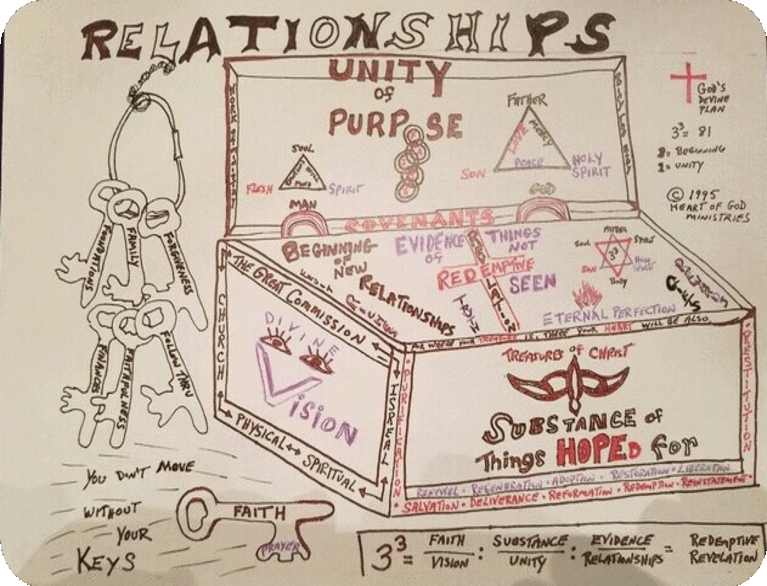 RELATIONSHIPS
UNITY
OF
PURPOSE
FATHER
LOVE
MERCY
PEACE
SON
HOLY
SPIRIT
SOUL
FLESH
SPIRIT
MAN
GOD
GOD'S
DEVINE
PLAN
3³ = 81
8 = BEGINNING
1 = UNITY
© 1995
HEART OF GOD
MINISTRIES
COVENANTS
FOUNDATIONS
FAMILY
FORGIVENESS
FINANCES
FAITHFULNESS
FOLLOW THRU
BEGINNING
OF NEW
RELATIONSHIPS
EVIDENCE
OF
THINGS
NOT
SEEN
REDEMPTIVE
FATHER
Soul
Spirit
3³
SON
Holy
Spirit
Body
ETERNAL PERFECTION
THE GREAT COMMISSION
CHURCH
ISSREAL
PHYSICAL ↔ SPIRITUAL
DIVINE
VISION
WHERE YOUR TREASURE IS, THERE YOUR HEART WILL BE ALSO.
TREASURES OF CHRIST
SUBSTANCE of
Things HOPED for
PURIFICATION
RESTITUTION
RENEWAL · REGENERATION · ADOPTION · RESTORATION · LIBERATION
SALVATION · DELIVERANCE · REFORMATION · REDEMPTION · REINSTATEMENT
YOU DON'T MOVE
WITHOUT
YOUR
KEYS
FAITH
PRAYER
3³ = FAITH / VISION : SUBSTANCE / UNITY : EVIDENCE / RELATIONSHIPS = REDEMPTIVE REVELATION